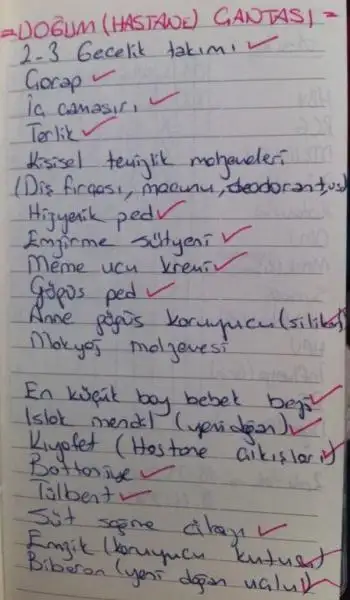 =DOĞUM (HASTANE) ÇANTASI=
2-3 Gecelik takımı ✓
Çorap ✓
İç çamaşırı ✓
Terlik ✓
Kişisel temizlik malzemeleri
(Diş fırçası, macunu, deodorant, vs)
Hijyenik ped ✓
Emzirme sütyeni ✓
Meme ucu kremi ✓
Göğüs ped ✓
Anne göğüs koruyucu (silikon) ✓
Makyaj malzemesi
En küçük boy bebek bezi ✓
Islak mendil (yeni doğan) ✓
Kıyafet (Hastane çıkışları) ✓
Battaniye ✓
Tülbent ✓
Süt sağma cihazı ✓
Emzik (koruyucu kutusu) ✓
Biberon (yeni doğan uçlu) ✓